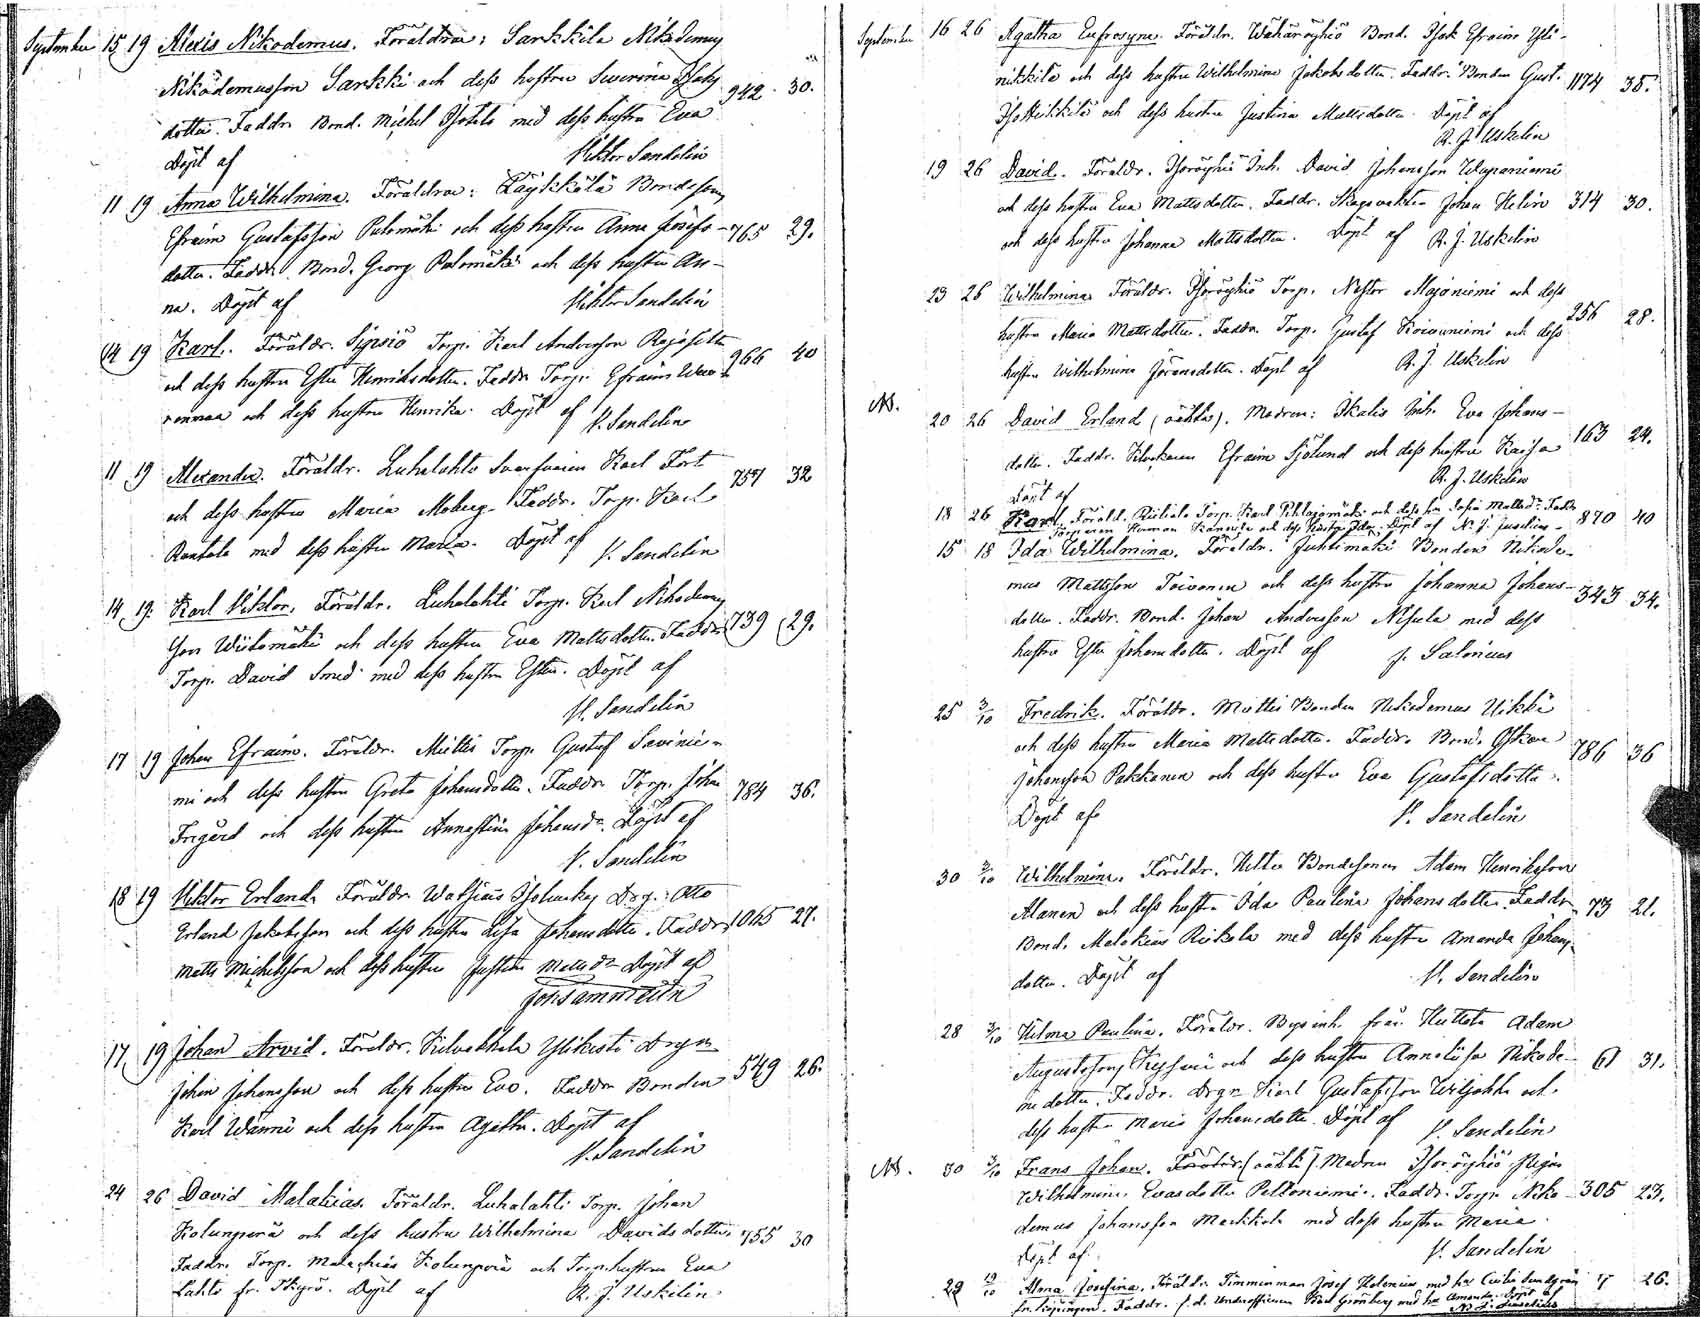 September 15 19 Alexis Nikodemus. Föräldrar: Sarkkila Nikodemus
Nikodemusson Sarkki och dess hustru Severina Isaks
dotter. Faddr. Bond. Michel Isotalo med dess hustru Eva 942 30.
Döpt af Viktor Sandelin
11 19 Anna Wilhelmina. Föräldrar: Läykkälä Bondesonen
Efraim Gustafsson Palomäki och dess hustru Anna Josefs- 765 29.
dotter. Faddr. Bond. Georg Palomäki och dess hustru An-
na. Döpt af Viktor Sandelin
14 19 Karl. Föräldr. Sipsiö Torp. Karl Andersson Rajasilta
och dess hustru Ester Henriksdotter. Faddr. Torp. Efraim 966 40
och dess hustru Henrika. Döpt af V. Sandelin
11 19 Alexander. Föräldr. Luhalahti Karl Fort
och dess hustru Maria Moberg. Faddr. Torp. Karl 757 32
Rantala med dess hustru Maria. Döpt af V. Sandelin
14 19. Karl Viktor. Föräldr. Luhalahti Torp. Karl Nikodemus
son Wiitamäki och dess hustru Eva Mattsdotter. Faddr. 739 29.
Torp. David Smed med dess hustru Ester. Döpt af
V. Sandelin
17 19 Johan Efraim. Föräldr. Miettis Torp. Gustaf Savinie-
mi och dess hustru Greta Johansdotter. Faddr. Torp. Johan 784 36.
Frigård och dess hustru Annastina Johansdr. Döpt af
V. Sandelin
18 19 Viktor Erland. Föräldr. Drg. Otto
Erland Jakobsson och dess hustru Lisa Johansdotter. Faddr. 1065 27.
Matts Michelsson och dess hustru Justina Mattsdr. Döpt af
Joh Sammelin
17 19 Johan Arvid. Föräldr. Kilvakkala Ylikisti Drgn
Johan Johansson och dess hustru Eva. Faddr. Bonden 549 26.
Karl Wänni och dess hustru Agatha. Döpt af
V. Sandelin
24 26 David Malakias. Föräldr. Luhalahti Torp. Johan
Kolunperä och dess hustru Wilhelmina Davidsdotter. 755 30
Faddr. Torp. Malachias Kolunperä och Torp.hustrun Eva
Lahti fr. Ikyrö. Döpt af R. J. Uskelin.
September 16 26 Agatha Eufrosyne. Föräldr. Wähäröyhiö Bond. Isak Efraim Yli-
nikkilä och dess hustru Wilhelmina Jakobsdotter. Faddr. Bonden Gust. 1174 35.
Isoheikkilä och dess hustru Justina Mattsdotter. Döpt af
R. J. Uskelin
19 26 David. Föräldr. Isoröyhiö Inh. David Johansson Wapaniemi
och dess hustru Eva Mattsdotter. Faddr. Skogvaktar Johan Helin 314 30.
och dess hustru Johanna Mattsdotter. Döpt af R. J. Uskelin
23 26 Wilhelmina. Föräldr. Isoröyhiö Torp. Nestor Majaniemi och dess
hustru Maria Mattsdotter. Faddr. Torp. Gustaf Koivuniemi och dess 256 28.
hustru Wilhelmina Göransdotter. Döpt af R. J. Uskelin
NB. 20 26 David Erland (oäkta). Modren: Ikalis Inh. Eva Johans-
dotter. Faddr. Klockaren Efraim Sjölund och dess hustru Kaisa 163 24.
Döpt af R. J. Uskelin
18 26 Karl. Föräld. Riitiala Torp. Karl Pihlajamäki och dess hu Sofia Mattsdr. Faddr.
Herman och dess hustru Ida. Döpt af N. J. Juselius. 870 40
15 18 Ida Wilhelmina. Föräldr. Juhtimäki Bonden Nikode-
mus Mattsson Toivonen och dess hustru Johanna Johans- 343 34.
dotter. Faddr. Bond. Johan Andersson Nisula med dess
hustru Ester Johansdotter. Döpt af J. Salonius
25 3/10 Fredrik. Föräldr. Miettis Bonden Nikodemus Uikki
och dess hustru Maria Mattsdotter. Faddr. Bond. Oskar 786 36
Johansson Pakkanen och dess hustru Eva Gustafsdotter.
Döpt af V. Sandelin
30 3/10 Wilhelmina. Föräldr. Kelte Bondesonen Adam Henriksson
Alanen och dess hustru Ida Paulina Johansdotter. Faddr. 73 21.
Bond. Malakias Rikala med dess hustru Amanda Johans-
dotter. Döpt af V. Sandelin
28 3/10 Hilma Paulina. Föräldr. Bys inh. från Huttola Adam
Augustsson och dess hustru Annalisa Nikode- 61 31.
mi dotter. Faddr. Drgn Karl Gustafsson och
dess hustru Maria Johansdotter. Döpt af V. Sandelin
NB. 30 3/10 Frans Johan. Föräldr. (oäkta). Modren Isoröyhiö Pigan
Wilhelmina Evasdotter Peltoniemi. Faddr. Torp. Niko- 305 23.
demus Johansson Markkola med dess hustru Maria.
Döpt af V. Sandelin
29 10/10 Alma Josefina. Föräldr. Timmerman Josef Helenius med hu Cecilia Sundgren 7 26.
fr. Köpingen. Faddr. f.d. Underofficeren Karl Grönberg med hu Amanda. Döpt af
N. J. Juselius